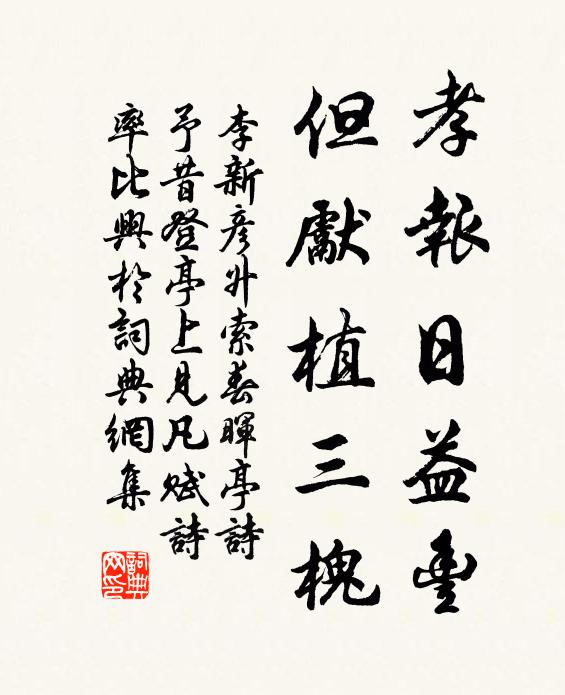 孝報日益豐
但獻植三槐
李新彥升索春暉亭詩
予昔登亭上見凡賦詩
率比興於詞典網集
詞典網印